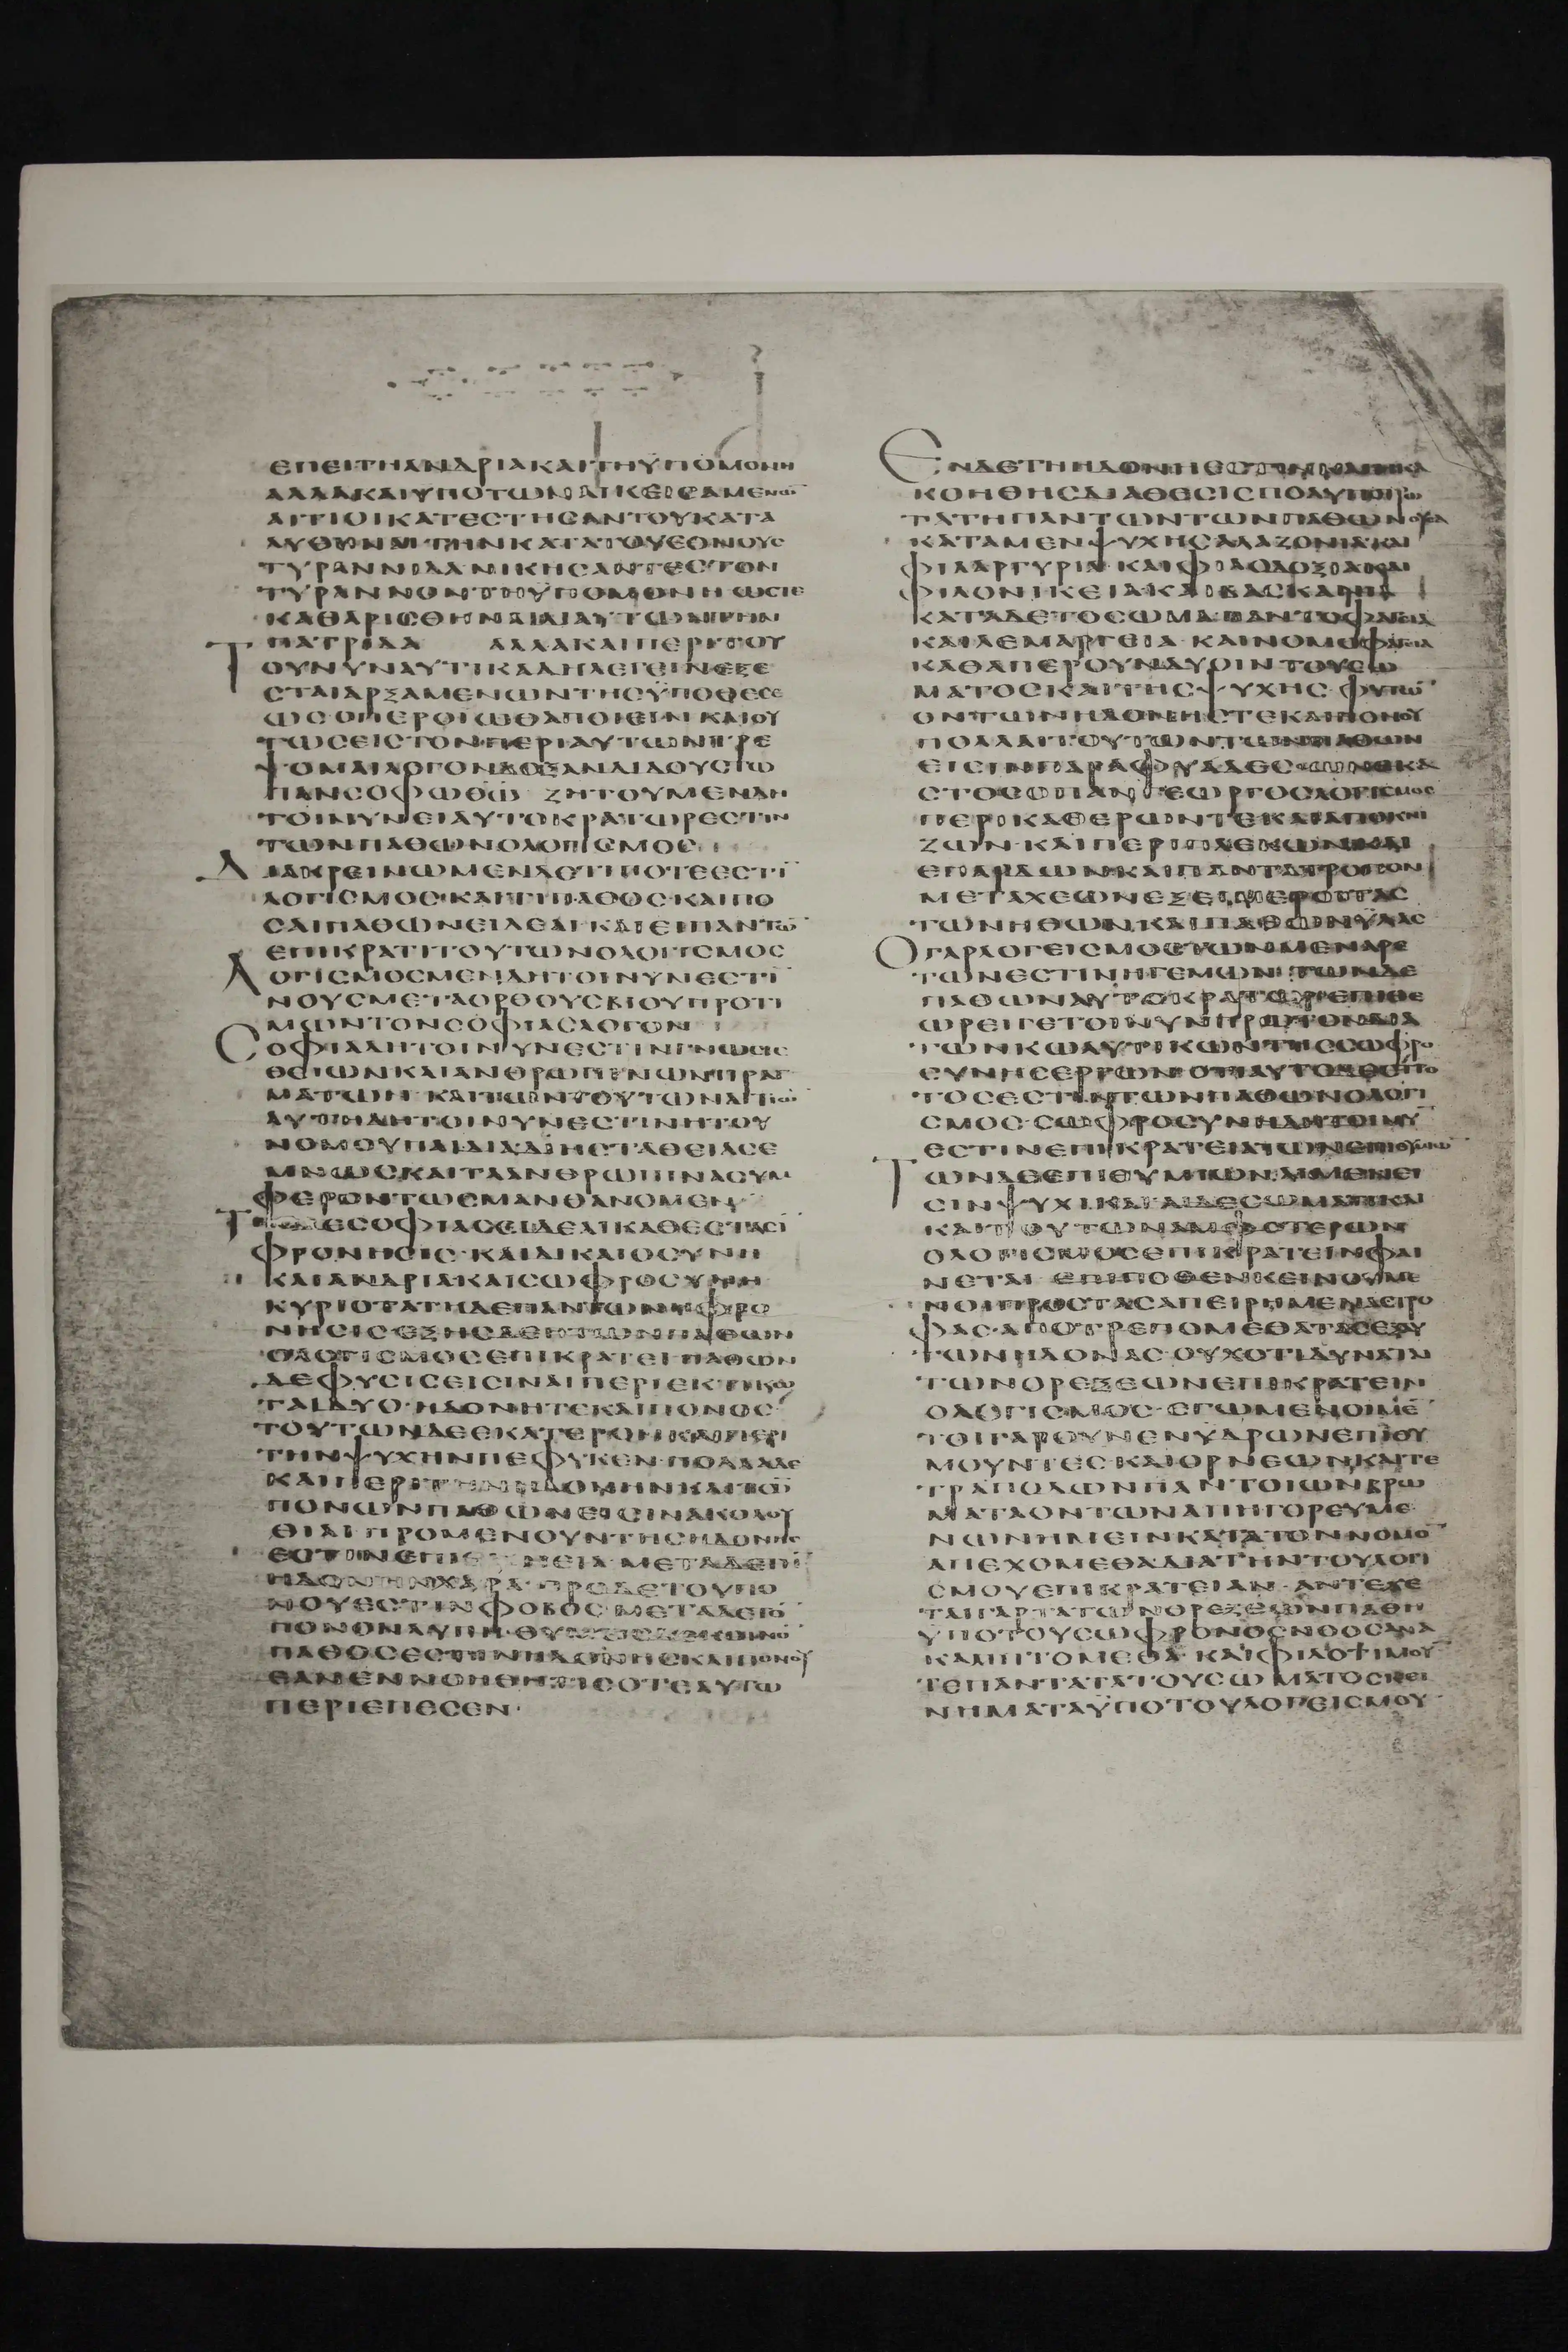 ΕΠΕΙΤΗΑΝΔΡΙΑΚΑΙΤΗΫΠΟΜΟΝΗ
ΑΛΛΑΚΑΙΥΠΟΤΩΝΑΙΚΕΙΣΑΜΕΝΩΝ
ΑΙΤΙΟΙΚΑΤΕΣΤΗΣΑΝΤΟΥΚΑΤΑ
ΛΥΘΗΝΑΙ ΤΗΝΚΑΤΑΤΟΥΕΘΝΟΥΣ
ΤΥΡΑΝΝΙΔΑΝΙΚΗΣΑΝΤΕΣΤΟΝ
ΤΥΡΑΝΝΟΝΤΗΫΠΟΜΟΝΗΩΣΤΕ
ΚΑΘΑΡΙΣΘΗΝΑΙΔΙΑΥΤΩΝΤΗΝ
ΠΑΤΡΙΔΑ ΑΛΛΑΚΑΙΠΕΡΙΤΟΥ
ΤΟΥΝΥΝΑΥΤΙΚΑΔΗΛΕΓΕΙΝΕΞΕ
ΣΤΑΙΑΡΞΑΜΕΝΩΝΤΗΣΫΠΟΘΕΣΕ
ΩΣΟΠΕΡΟΙΩΘΑΠΟΙΕΙΝ ΚΑΙΟΥ
ΤΩΣΕΙΣΤΟΝΠΕΡΙΑΥΤΩΝΤΡΕ
ΨΟΜΑΙΛΟΓΟΝΔΟΞΑΝΔΙΔΟΥΣΤΩ
ΠΑΝΣΟΦΩΘΩ ΖΗΤΟΥΜΕΝΔΗ
ΤΟΙΝΥΝΕΙΑΥΤΟΚΡΑΤΩΡΕΣΤΙΝ
ΤΩΝΠΑΘΩΝΟΛΟΓΙΣΜΟΣ
ΔΙΑΚΡΕΙΝΩΜΕΝΔΕΤΙΠΟΤΕΕΣΤΙ
ΛΟΓΙΣΜΟΣΚΑΙΤΙΠΑΘΟΣΚΑΙΠΟ
ΣΑΙΠΑΘΩΝΕΙΔΕΑΙΚΑΙΕΙΠΑΝΤΩ
ΕΠΙΚΡΑΤΙΤΟΥΤΩΝΟΛΟΓΙΣΜΟΣ
ΛΟΓΙΣΜΟΣΜΕΝΔΗΤΟΙΝΥΝΕΣΤΙ
ΝΟΥΣΜΕΤΑΟΡΘΟΥΣΒΙΟΥΠΡΟΤΙ
ΜΩΝΤΟΝΣΟΦΙΑΣΛΟΓΟΝ
ΣΟΦΙΑΔΗΤΟΙΝΥΝΕΣΤΙΝΓΝΩΣΙΣ
ΘΕΙΩΝΚΑΙΑΝΘΡΩΠΙΝΩΝΠΡΑΓ
ΜΑΤΩΝ ΚΑΙΤΩΝΤΟΥΤΩΝΑΙΤΙΩ
ΑΥΤΗΔΗΤΟΙΝΥΝΕΣΤΙΝΗΤΟΥ
ΝΟΜΟΥΠΑΙΔΙΑΔΙΗΣΤΑΘΕΙΑΣΕ
ΜΝΩΣΚΑΙΤΑΑΝΘΡΩΠΙΝΑΣΥΜ
ΦΕΡΟΝΤΩΣΜΑΝΘΑΝΟΜΕΝ
ΤΗΣΔΕΣΟΦΙΑΣΕΙΔΕΑΙΚΑΘΕΣΤΑΣΙ
ΦΡΟΝΗΣΙΣ·ΚΑΙΔΙΚΑΙΟΣΥΝΗ
ΚΑΙΑΝΔΡΙΑΚΑΙΣΩΦΡΟΣΥΝΗ
ΚΥΡΙΩΤΑΤΗΔΕΠΑΝΤΩΝΗΦΡΟ
ΝΗΣΙΣΕΞΗΣΔΕΗΤΩΝΠΑΘΩΝ
ΟΛΟΓΙΣΜΟΣΕΠΙΚΡΑΤΕΙΠΑΘΩΝ
ΔΕΦΥΣΙΣΕΙΣΙΝΑΙΠΕΡΙΕΚΤΙΚΩ
ΤΑΙΔΥΟ·ΗΔΟΝΗΤΕΚΑΙΠΟΝΟΣ
ΤΟΥΤΩΝΔΕΕΚΑΤΕΡΟΝΚΑΙΠΕΡΙ
ΤΗΝΨΥΧΗΝΠΕΦΥΚΕΝ·ΠΟΛΛΑΔΕ
ΚΑΙΠΕΡΙΤΗΝΗΔΟΝΗΝΚΑΙΤΟ
ΠΟΝΩΝΠΑΘΩΝΕΙΣΙΝΑΚΟΛΟΥ
ΘΙΑΙΠΡΟΜΕΝΟΥΝΤΗΣΗΔΟΝΗΣ
ΕΣΤΙΝΕΠΙΘΥΜΕΙΑ·ΜΕΤΑΔΕΤΗ
ΗΔΟΝΗΝΧΑΡΑ·ΠΡΟΔΕΤΟΥΠΟ
ΝΟΥΕΣΤΙΝΦΟΒΟΣ·ΜΕΤΑΔΕΤΟ
ΠΟΝΟΝΛΥΠΗ·ΘΥΜΟΣΔΕΚΟΙΝΟ
ΠΑΘΟΣΕΣΤΙΝΗΔΟΝΗΣΚΑΙΠΟΝΟΥ
ΕΑΝΕΝΝΟΗΘΗΤΙΣΟΤΕΑΥΤΩ
ΠΕΡΙΕΠΕΣΕΝ·
ΕΝΔΕΤΗΗΔΟΝΗ
ΚΟΗΘΗΣΔΙΑΘΕΣΙΣΠΟΛΥΤΡΟΠΩ
ΤΑΤΗΠΑΝΤΩΝΤΩΝΠΑΘΩΝΟΥΣΑ
ΚΑΤΑΜΕΝΨΥΧΗΣΑΛΑΖΟΝΙΑΚΑΙ
ΦΙΛΑΡΓΥΡΙΑ·ΚΑΙΦΙΛΟΔΟΞΙΑΚΑΙ
ΦΙΛΟΝΙΚΕΙΑΚΑΙΒΑΣΚΑΝΙΑ
ΚΑΤΑΔΕΤΟΣΩΜΑΠΑΝΤΟΦΑΓΙΑ
ΚΑΙΛΕΜΑΡΓΕΙΑ ΚΑΙΜΟΝΟΦΑΓΙΑ
ΚΑΘΑΠΕΡΟΥΝΔΥΟΙΝΤΟΥΣΩ
ΜΑΤΟΣΚΑΙΤΗΣΨΥΧΗΣ·ΦΥΤΩ
ΟΝΤΩΝΗΔΟΝΗΣΤΕΚΑΙΠΟΝΟΥ
ΠΟΛΛΑΙΤΟΥΤΩΝΤΩΝΠΑΘΩΝ
ΕΙΣΙΝΠΑΡΑΦΥΑΔΕΣ·ΩΝΕΚΑ
ΣΤΟΣΟΠΑΝΓΕΩΡΓΟΣΛΟΓΙΣΜΟΣ
ΠΕΡΙΚΑΘΕΡΩΝΤΕΚΑΙΑΠΟΚΝΙ
ΖΩΝ·ΚΑΙΠΕΡΙΠΛΕΚΩΝΚΑΙ
ΕΠΑΡΔΩΝΚΑΙΠΑΝΤΑΤΡΟΠΟΝ
ΜΕΤΑΧΕΩΝΕΞΕΙΜΕΡΟΙΤΑΣ
ΤΩΝΗΘΩΝΚΑΙΠΑΘΩΝΥΛΑΣ
ΟΓΑΡΛΟΓΕΙΣΜΟΣΤΩΝΜΕΝΑΡΕ
ΤΩΝΕΣΤΙΝΗΓΕΜΩΝ·ΤΩΝΔΕ
ΠΑΘΩΝΑΥΤΟΚΡΑΤΩΡΕΠΙΘΕ
ΩΡΕΙΤΕΤΟΙΝΥΝΠΡΩΤΟΝΔΙΑ
ΤΩΝΚΩΛΥΤΙΚΩΝΤΗΣΣΩΦΡΟ
ΣΥΝΗΣΕΡΓΩΝΟΤΙΑΥΤΟΔΕΣΠΟ
ΤΟΣΕΣΤΙΝΤΩΝΠΑΘΩΝΟΛΟΓΙ
ΣΜΟΣ·ΣΩΦΡΟΣΥΝΗΔΗΤΟΙΝΥ
ΕΣΤΙΝΕΠΙΚΡΑΤΕΙΑΤΩΝΕΠΙΘΥΜΙΩ
ΤΩΝΔΕΕΠΙΘΥΜΙΩΝΑΙΜΕΝΕΙ
ΣΙΝΨΥΧΙΚΑΙΑΙΔΕΣΩΜΑΤΙΚΑΙ
ΚΑΙΤΟΥΤΩΝΑΜΦΟΤΕΡΩΝ
ΟΛΟΓΙΣΜΟΣΕΠΙΚΡΑΤΕΙΝΦΑΙ
ΝΕΤΑΙ ΕΠΙΠΟΘΕΝΚΕΙΝΟΥΜΕ
ΝΟΙΠΡΟΣΤΑΣΑΠΕΙΡΗΜΕΝΑΣΤΡΟ
ΦΑΣ·ΑΠΟΤΡΕΠΟΜΕΘΑΤΑΣΕΞΑΥ
ΤΩΝΗΔΟΝΑΣ·ΟΥΧΟΤΙΔΥΝΑΤΑΙ
ΤΩΝΟΡΕΞΕΩΝΕΠΙΚΡΑΤΕΙΝ
ΟΛΟΓΙΣΜΟΣ·ΕΓΩΜΕΝΟΙΜΕ
ΤΟΙΓΑΡΟΥΝΕΝΥΔΡΩΝΕΠΙΘΥ
ΜΟΥΝΤΕΣ·ΚΑΙΟΡΝΕΩΝΚΑΙΤΕ
ΤΡΑΠΟΔΩΝΠΑΝΤΟΙΩΝΒΡΩ
ΜΑΤΑΟΝΤΩΝΑΠΗΓΟΡΕΥΜΕ
ΝΩΝΗΜΕΙΝΚΑΤΑΤΟΝΝΟΜΟ
ΑΠΕΧΟΜΕΘΑΔΙΑΤΗΝΤΟΥΛΟΓΙ
ΣΜΟΥΕΠΙΚΡΑΤΕΙΑΝ·ΑΝΤΕΧΕ
ΤΑΙΓΑΡΤΑΤΩΝΟΡΕΞΕΩΝΠΑΘΗ
ΥΠΟΤΟΥΣΩΦΡΟΝΟΣΝΟΟΣΑΝΑ
ΚΑΜΠΤΟΜΕΘΑ·ΚΑΙΦΙΛΟΤΙΜΟΥ
ΤΕΠΑΝΤΑΤΑΤΟΥΣΩΜΑΤΟΣΚΕΙ
ΝΗΜΑΤΑΫΠΟΤΟΥΛΟΓΕΙΣΜΟΥ